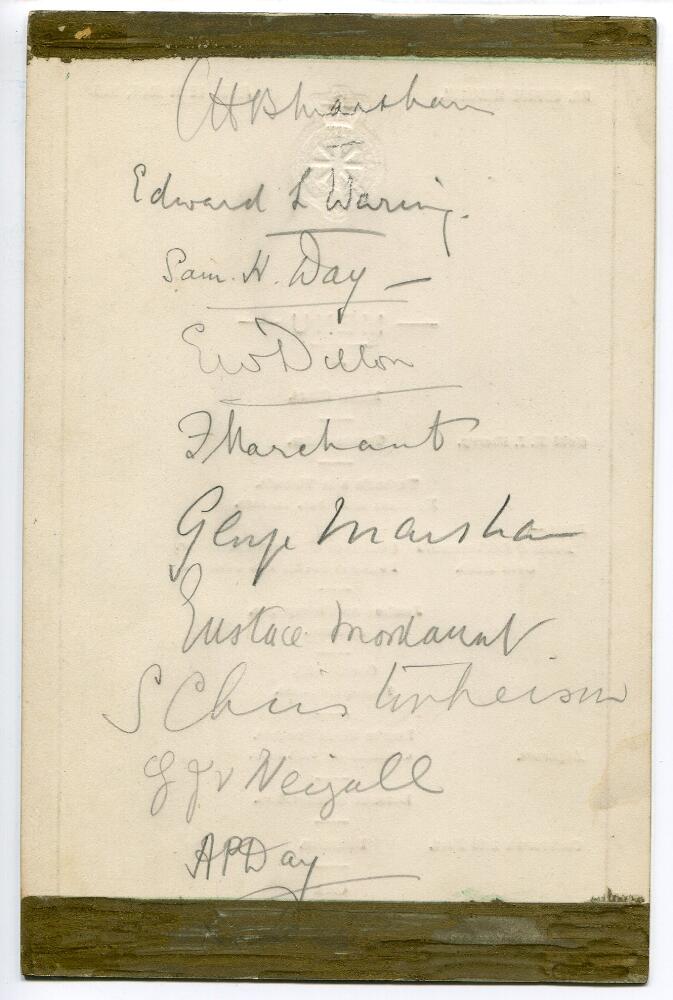 CHB Marsham
Edward L Waring.
Sam. H. Day
EW Dillon
F Marchant
George Marsham
Eustace Mordaunt
S Christopherson
G J V Weigall
A P Day